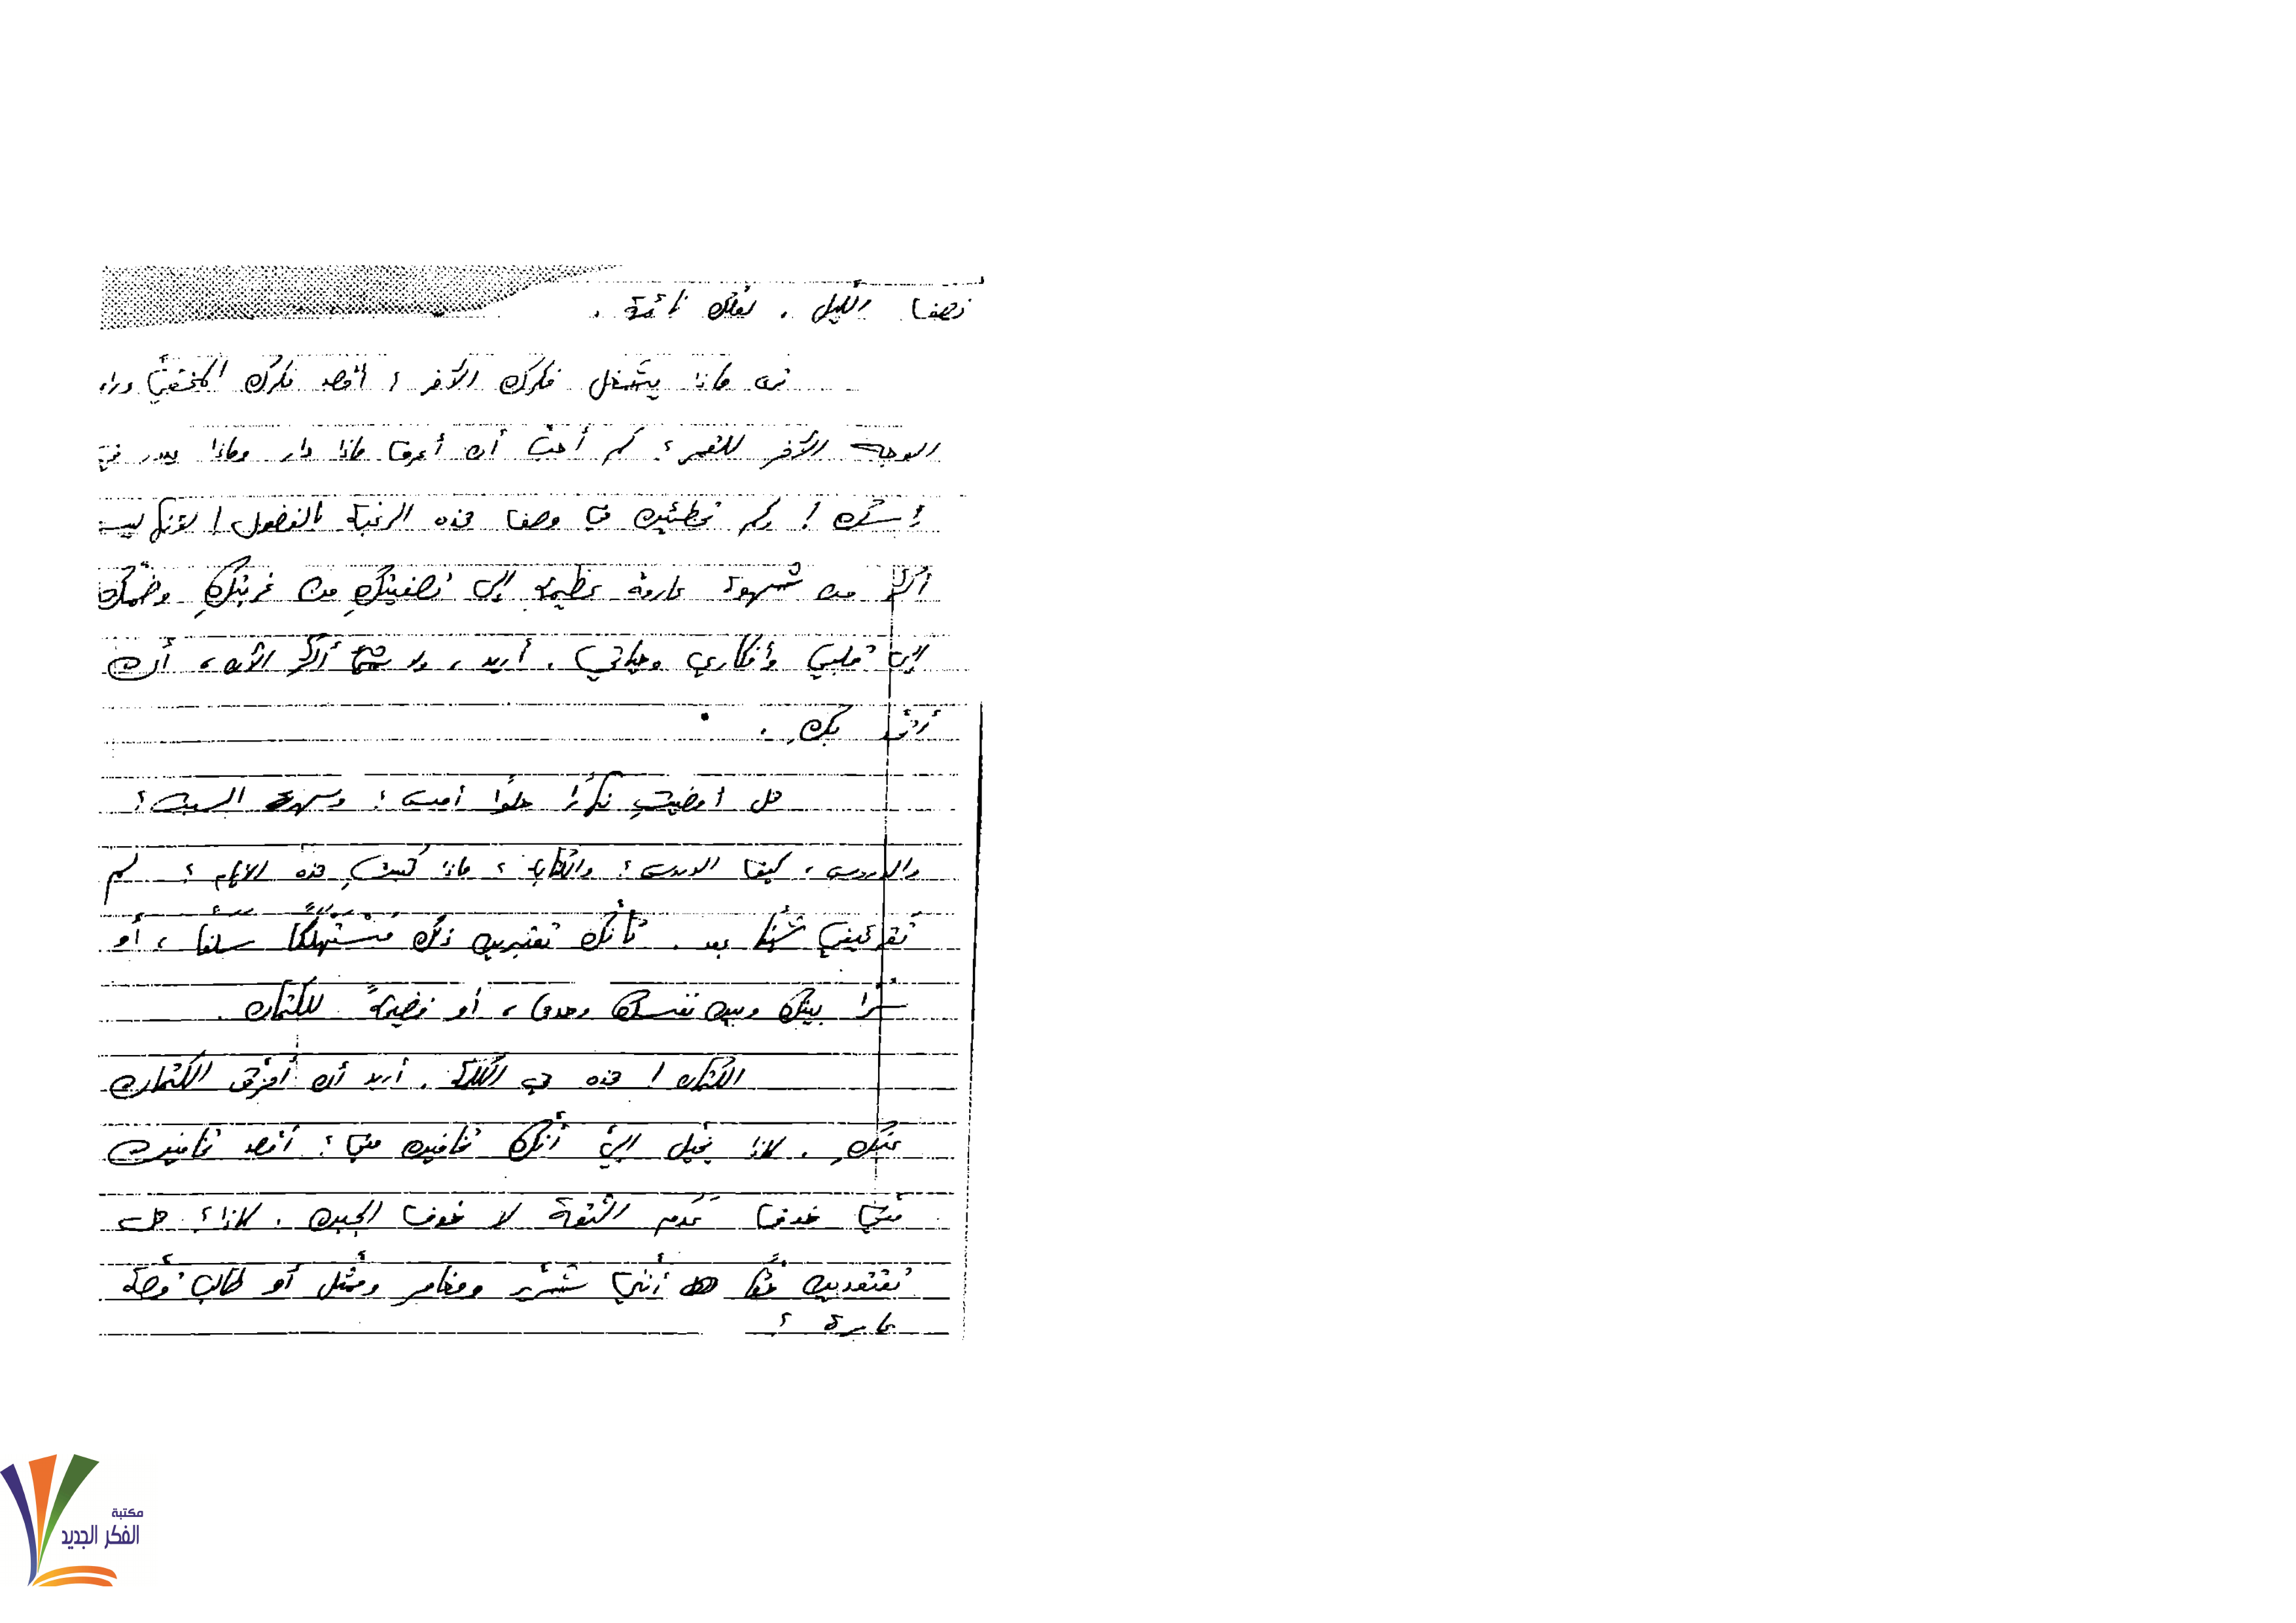 نصف الليل. لعلك نائمة.
ترى ماذا يشغل فكرك الآخر؟ أقصد فكرك المختفي وراء
الوجه الآخر للقمر؟ كم أحب أن أعرف ماذا دار وماذا يدور في
رأسك! وكم تخطئين في وصف هذه الرغبة بالفضول! لأنها ليست
أكثر من شهوة عارمة عظيمة إلى تصفيتكِ من غربتكِ وضمّك
إلى قلبي وأفكاري وحياتي. أريد، ولا شيء أكثر الآن، أن
أثق بكِ.
هل أمضيتِ نهارًا حلوًا أمس؟ وسهرة السبت؟
والدروس، كيف الدروس؟ والكتابة؟ ماذا كتبتِ هذه الأيام؟ لم
تقرئيني شيئًا بعد. كأنك تعتبرين ذلك مُستهلكًا سلفًا، أو
سرًا بينك وبين نفسك وحدها، أو فضيحةً للكتمان.
الكتمان! هذه هي الكلمة. أريد أن أمزّق الكتمان
عنكِ. لماذا يُخيل إليّ أنك تخافين مني؟ أقصد تخافين
منّي خوف عَدَم الثقة لا خوف الجبن. لماذا؟ هل
تعتقدين حقًا أنني شرير ومغامر وممثل أو طالب
عابرة؟
مكتبة
الفكر الجديد